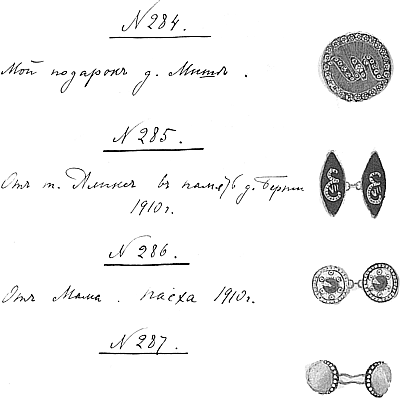 N 284.
Мой подарокъ д. Мишѣ.
N 285.
Отъ т. Аликсъ въ память д. Берти
1910 г.
N 286.
Отъ Мама. Пасха 1910 г.
N 287.